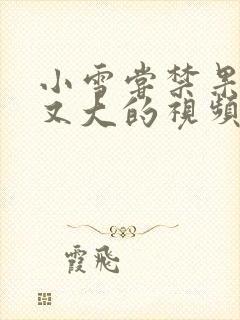 小雪嘗禁果
又大的視頻
霞飛